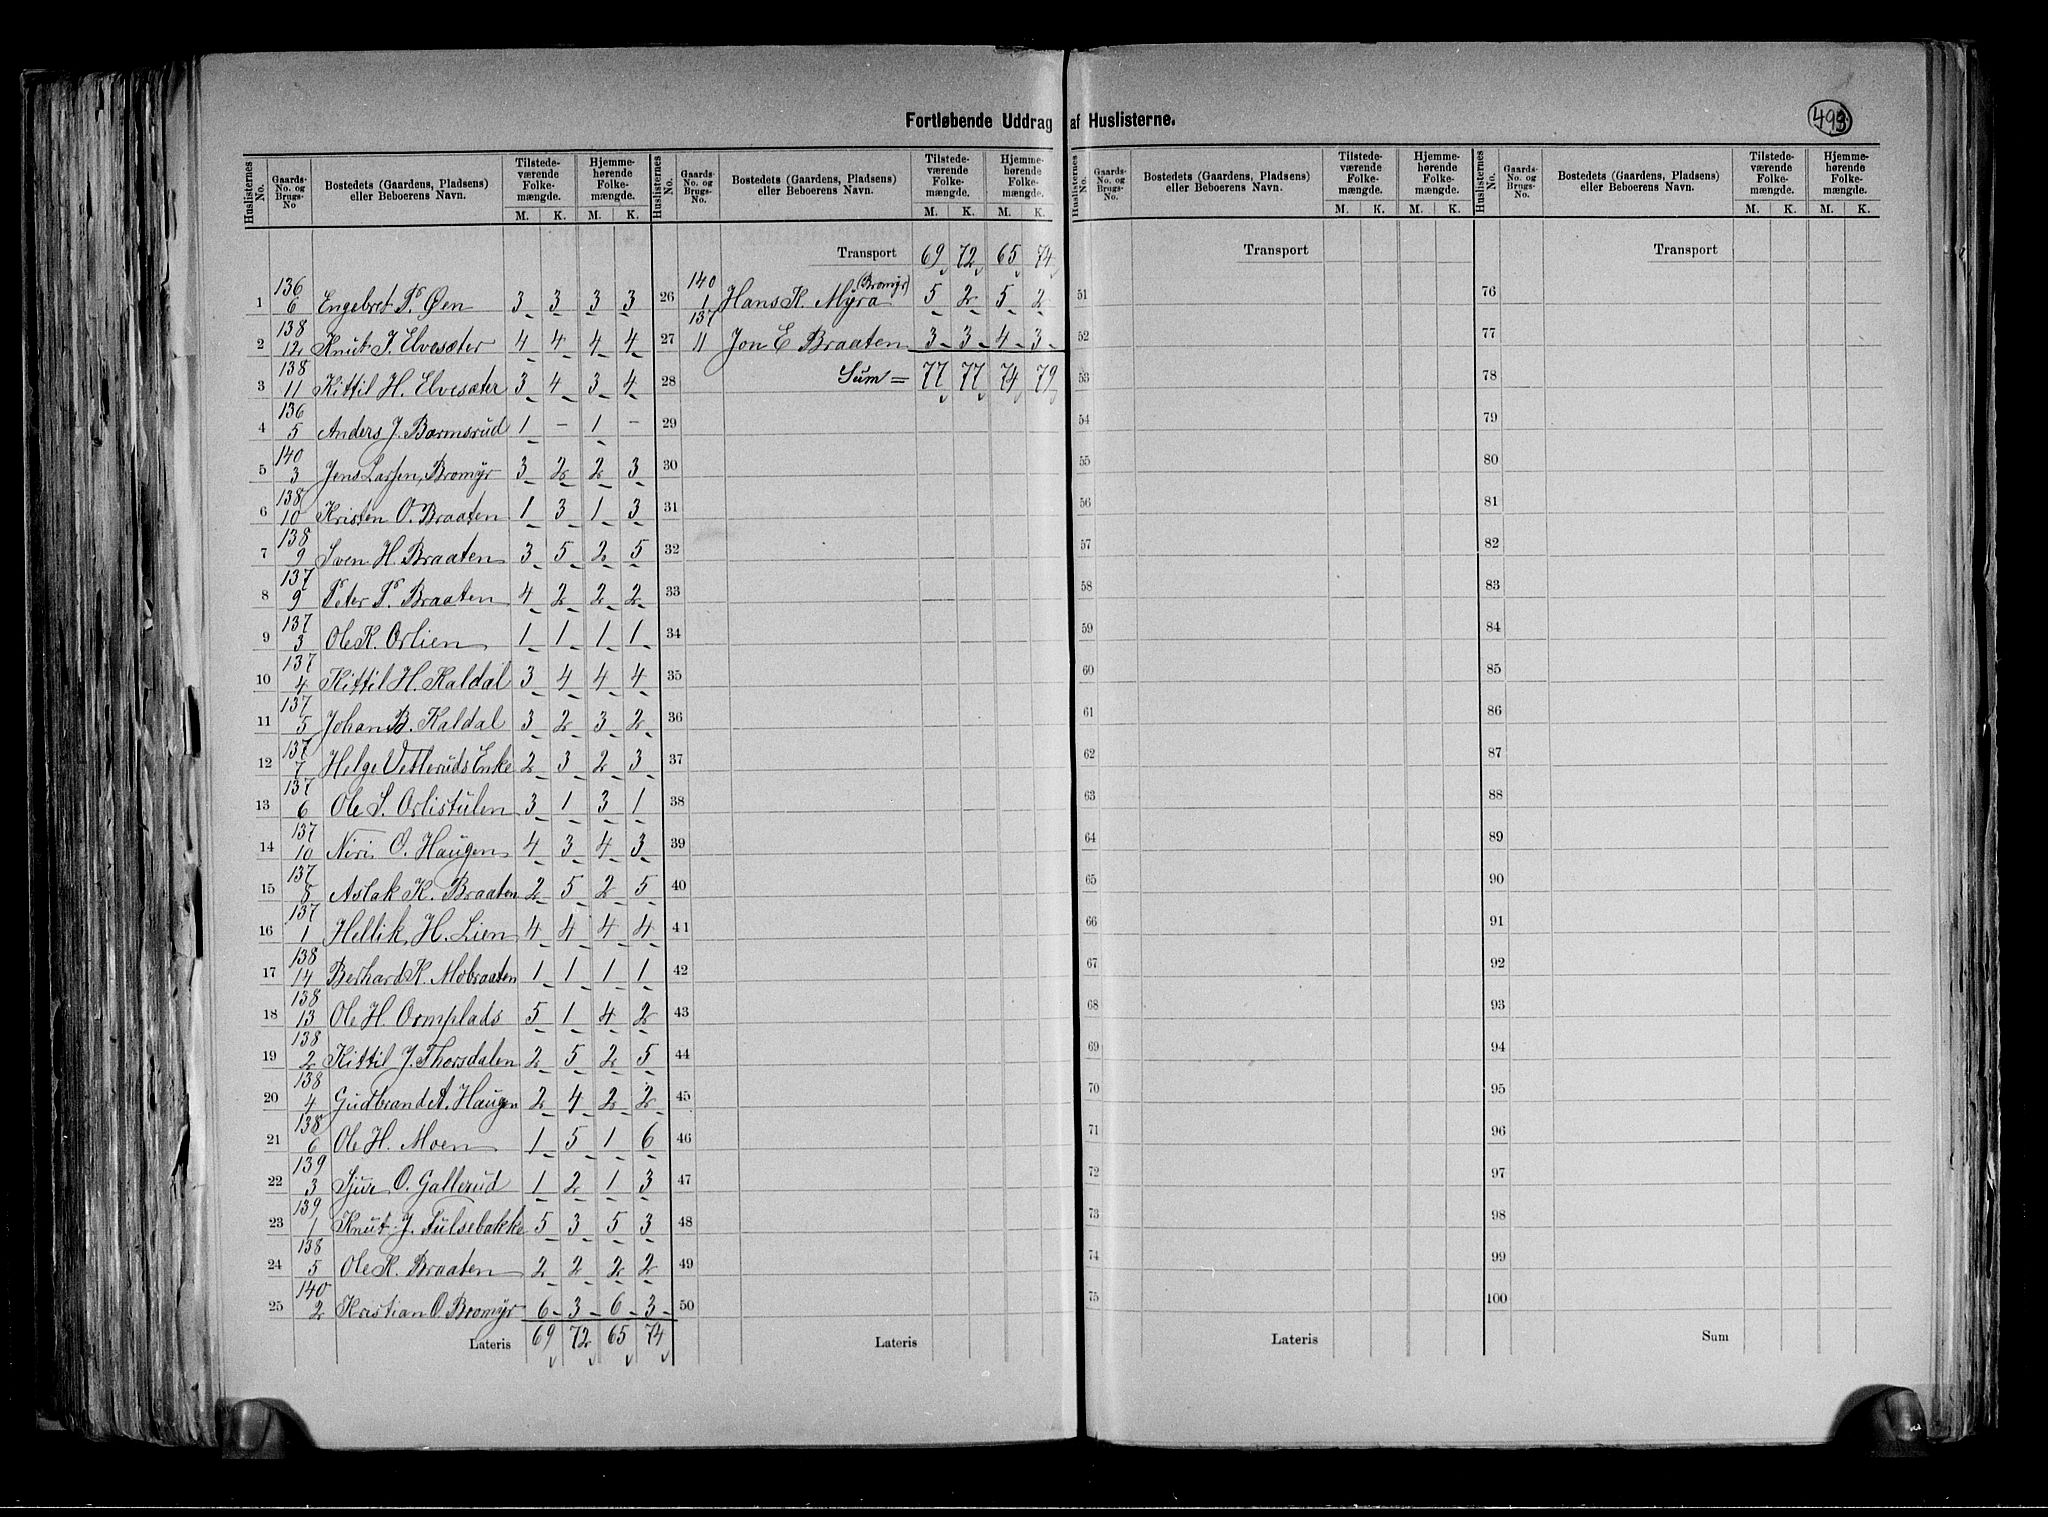 Fortløbende Uddrag af Huslisterne.
493
Huslisternes No. | Gaards-No. og Brugs-No | Bostedets (Gaardens, Pladsens) eller Beboerens Navn. | Tilstedeværende Folkemængde. M. K. | Hjemmehørende Folkemængde. M. K.
1 136/6 Engebret P. Øen 3 3 3 3
2 138/12 Knut J. Elvesæter 4 4 4 4
3 138/11 Kittil H. Elvesæter 3 4 3 4
4 136/5 Anders J. Bormsrud 1 – 1 –
5 140/3 Jens Larsen, Bromyr 3 2 2 3
6 138/10 Kristen O. Braaten 1 3 1 3
7 138/9 Sven H. Braaten 3 5 2 5
8 137/9 Peter P. Braaten 4 2 2 2
9 137/3 Ole K. Orlien 1 1 1 1
10 137/4 Kittil H. Kaldal 3 4 4 4
11 137/5 Johan B. Kaldal 3 2 3 2
12 137/7 Helge Vetteruds Enke 2 3 2 3
13 137/6 Ole S. Orlistulen 3 1 3 1
14 137/10 Niri O. Haugen 4 3 4 3
15 137/8 Aslak K. Braaten 2 5 2 5
16 137/1 Hellik H. Lien 4 4 4 4
17 138/14 Berhard K. Mobraaten 1 1 1 1
18 138/13 Ole H. Ormplads 5 1 4 2
19 138/2 Kittil J. Thorsdalen 2 5 2 5
20 138/4 Gudbrand A. Haugen 2 4 2 2
21 138/6 Ole H. Moen 1 5 1 6
22 139/3 Sjur O. Gallerud 1 2 1 3
23 139/1 Knut J. Tulsebakke 5 3 5 3
24 138/5 Ole K. Braaten 2 2 2 2
25 140/2 Kristian O. Bromyr 6 3 6 3
Lateris 69 72 65 74
Huslisternes No. | Gaards-No. og Brugs-No. | Bostedets (Gaardens, Pladsens) eller Beboerens Navn. | Tilstedeværende Folkemængde. M. K. | Hjemmehørende Folkemængde. M. K.
Transport 69 72 65 74
26 140/1 Hans K. Myra (Bromyr) 5 2 5 2
27 137/11 Jon E Braaten 3 3 4 3
28 Sum = 77 77 74 79
29
30
31
32
33
34
35
36
37
38
39
40
41
42
43
44
45
46
47
48
49
50
Lateris
Huslisternes No. | Gaards-No. og Brugs-No. | Bostedets (Gaardens, Pladsens) eller Beboerens Navn. | Tilstedeværende Folkemængde. M. K. | Hjemmehørende Folkemængde. M. K.
Transport
51
52
53
54
55
56
57
58
59
60
61
62
63
64
65
66
67
68
69
70
71
72
73
74
75
Lateris
Huslisternes No. | Gaards-No. og Brugs-No. | Bostedets (Gaardens, Pladsens) eller Beboerens Navn. | Tilstedeværende Folkemængde. M. K. | Hjemmehørende Folkemængde. M. K.
Transport
76
77
78
79
80
81
82
83
84
85
86
87
88
89
90
91
92
93
94
95
96
97
98
99
100
Sum